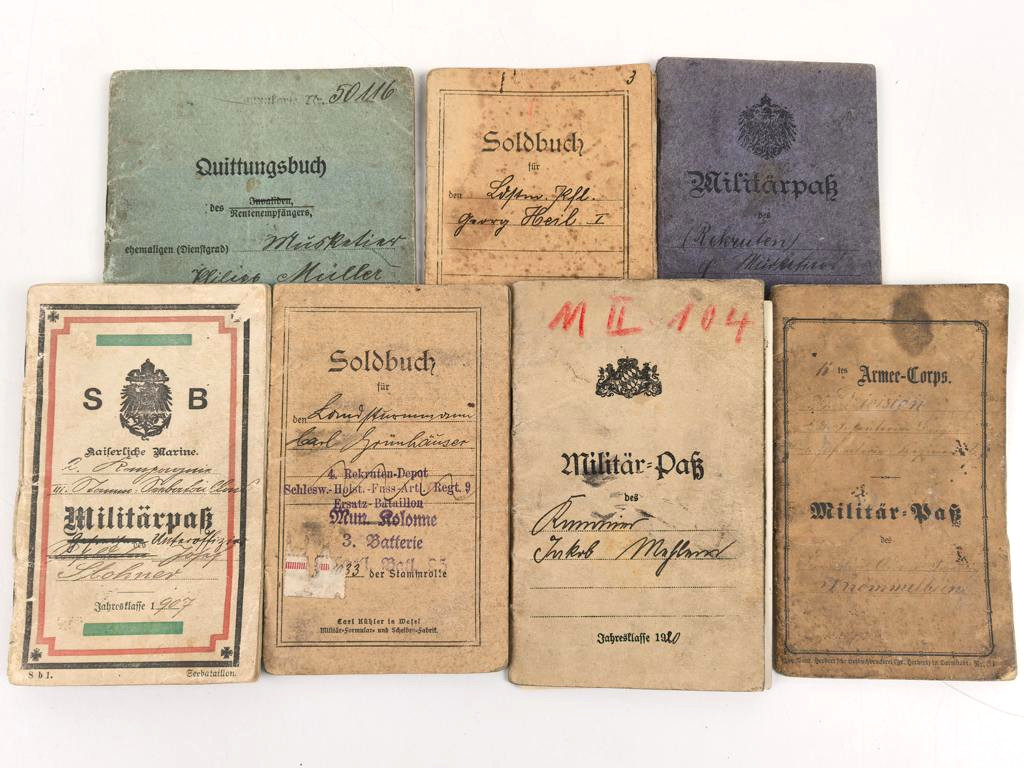 Nr. 50116
Quittungsbuch
des Invaliden,
Rentenempfängers,
ehemaligen (Dienstgrad) Musketier
Philipp Müller
3
Soldbuch
für
den Ldstm. Pfl.
Georg Heil I
Militärpaß
des
(Rekruten)
Musketiers
S B
Kaiserliche Marine.
2. Kompagnie
III. Stamm-Seebataillons
Militärpaß
des Unteroffizier
Josef
Jahresklasse 1907
S b 1. Seebataillon.
Soldbuch
für
den Landsturmmann
Carl Grünhäuser
4. Rekruten-Depot
Schlesw.-Holst.-Fuss-Artl. Regt. 9
Ersatz-Bataillon
Mun. Kolonne
3. Batterie
der Stammrolle
Carl Kühler in Wesel
Militär-Formular- und Scheiben-Fabrik.
M II 104
Militär-Paß
des
Jakob
Jahresklasse 1920
tes Armee-Corps.
Division
Militär-Paß
des